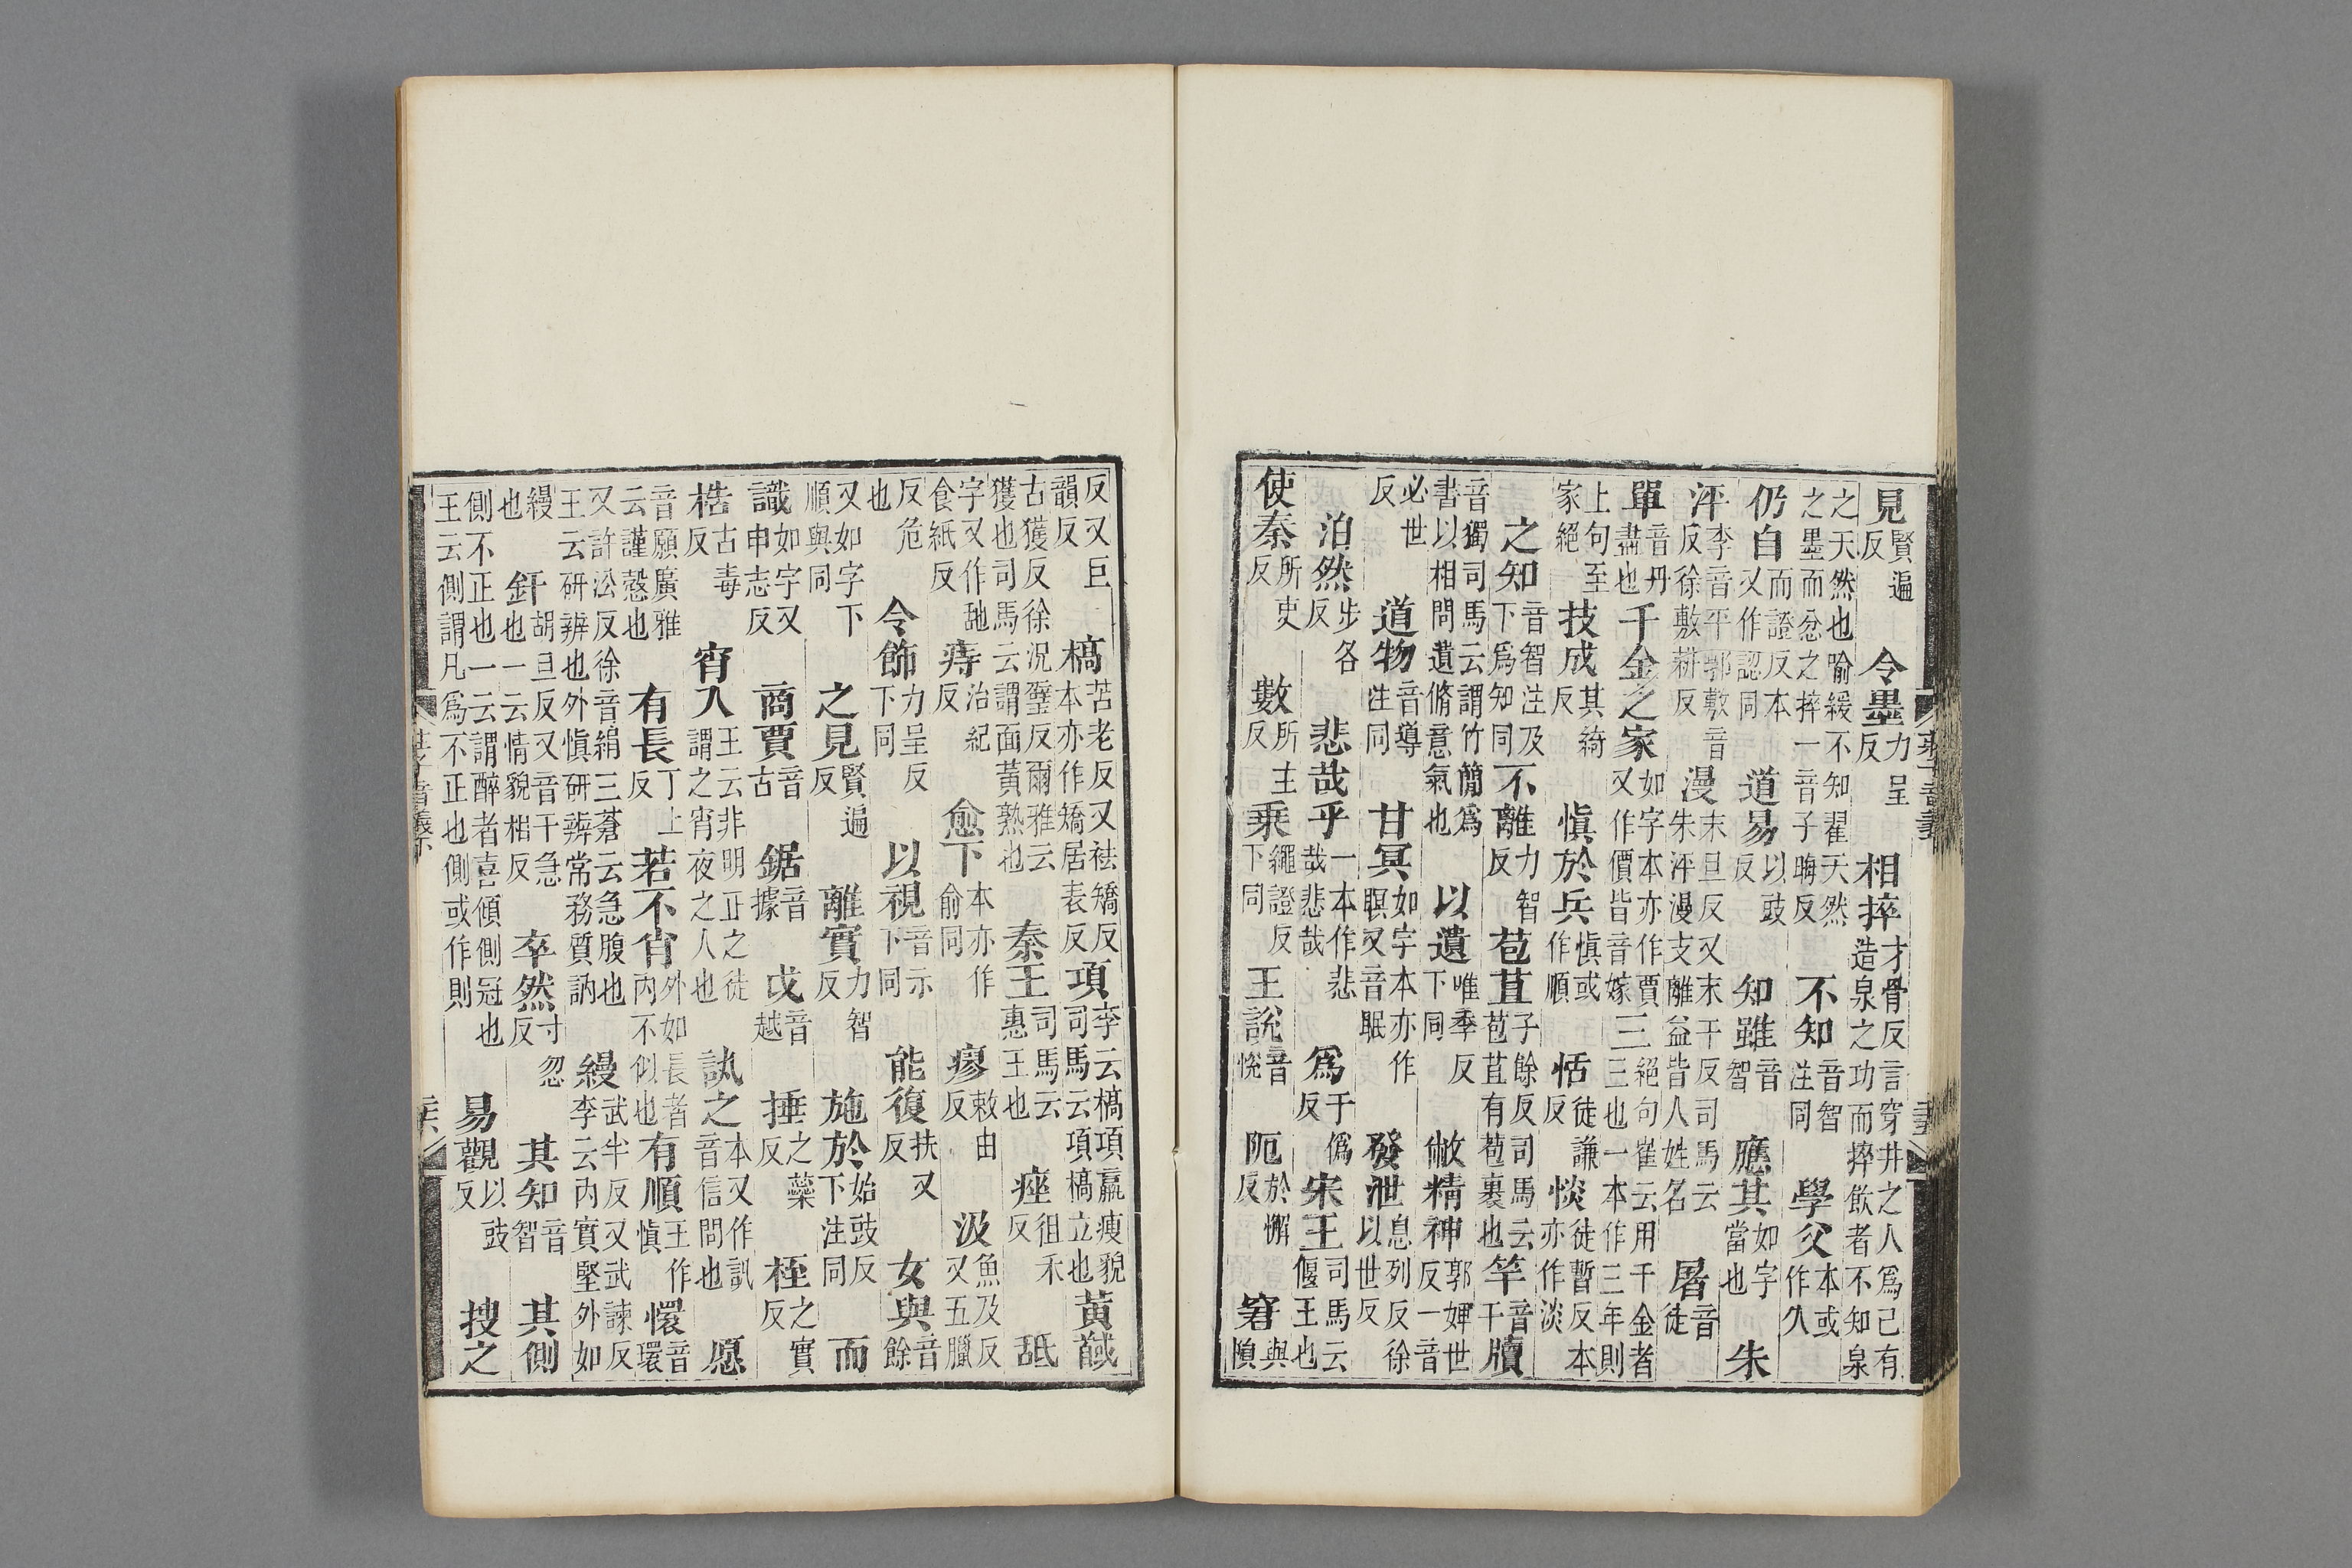 見賢遍反 令墨力呈反 相捽才骨反言穿井之人爲己有造泉之功而捽飲者不知泉
之天然也喻緩不知翟天然之墨而忿之捽一音子晦反 不知音智注同 學父本或作久
仍自而證反本又作認同 道易以豉反 知雖音智 應其如字當也 朱
泙李音平郭敷音反徐敷耕反 漫末旦反又末干反司馬云朱泙漫支離益皆人姓名 屠音徒
單音丹盡也 千金之家如字本亦作賈又作價皆音嫁 三絕句崔云用千金者三也一本作三年則
上句至家絕 技成其綺反 慎於兵慎或作順 恬徒謙反 惔徒暫反本亦作淡
之知音智注及下爲知同 不離力智反 苞苴子餘反司馬云苞苴有苞裹也 竿音干 牘
音獨司馬云謂竹簡爲書以相問遺脩意氣也 以遺唯季反下同 敝精神郭婢世反一音
必世反 道物音導注同 甘冥如字本亦作瞑又音眠 發泄息列反徐以世反
泊然步各反 悲哉乎一本作悲哉悲哉 爲于僞反 宋王司馬云偃王也
使秦所吏反 數所主反 乘繩證反下同 王說音悅 阨於懈反 窘與隕
反又巨韻反 槁苦老反又袪矯反本亦作矯居表反 項李云槁項羸瘦貌司馬云項槁立也 黃馘
古獲反徐況璧反爾雅云獲也司馬云謂面黃熟也 秦王司馬云惠王也 痤徂禾反 舐
字又作䑛食紙反 痔治紀反 愈下本亦作俞同 瘳敕由反 汲魚及反又五臘
反危也 令飾力呈反下同 以視音示下同 能復扶又反 女與音餘
又如字下順與同 之見賢遍反 離實力智反 施於始豉反下注同 而
識如字又申志反 商賈音古 鋸音據 戉音越 捶之蘂反 桎之實反
梏古毒反 宵人王云非明正之徒謂之宵夜之人也 訊之本又作訙音信問也 愿
音願廣雅云謹愨也 有長丁丈反 若不肖外如長者内不似也 有順王作慎 懁音環
又許沇反徐音絹三蒼云急腹也王云研辨也外慎研辨常務質訥 縵武半反又武諫反李云内實堅外如
縵也 釬胡旦反又音干急也一云情貌相反 卒然寸忽反 其知音智 其側
側不正也一云謂醉者喜傾側冠也王云側謂凡爲不正也側或作則 易觀以豉反 搜之